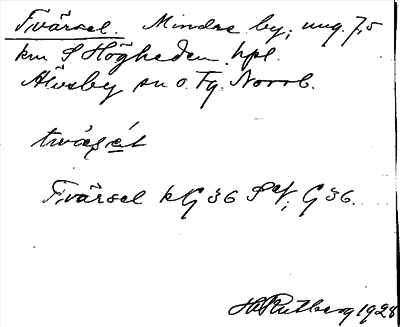 Tvärsel. Mindre by, ung. 7,5
km S Högheden hpl.
Älvsby sn o. Tg. Norrb.
twäṣẹt
Tvärsel kG 36 SV, G 36.
H. Rutberg 1928